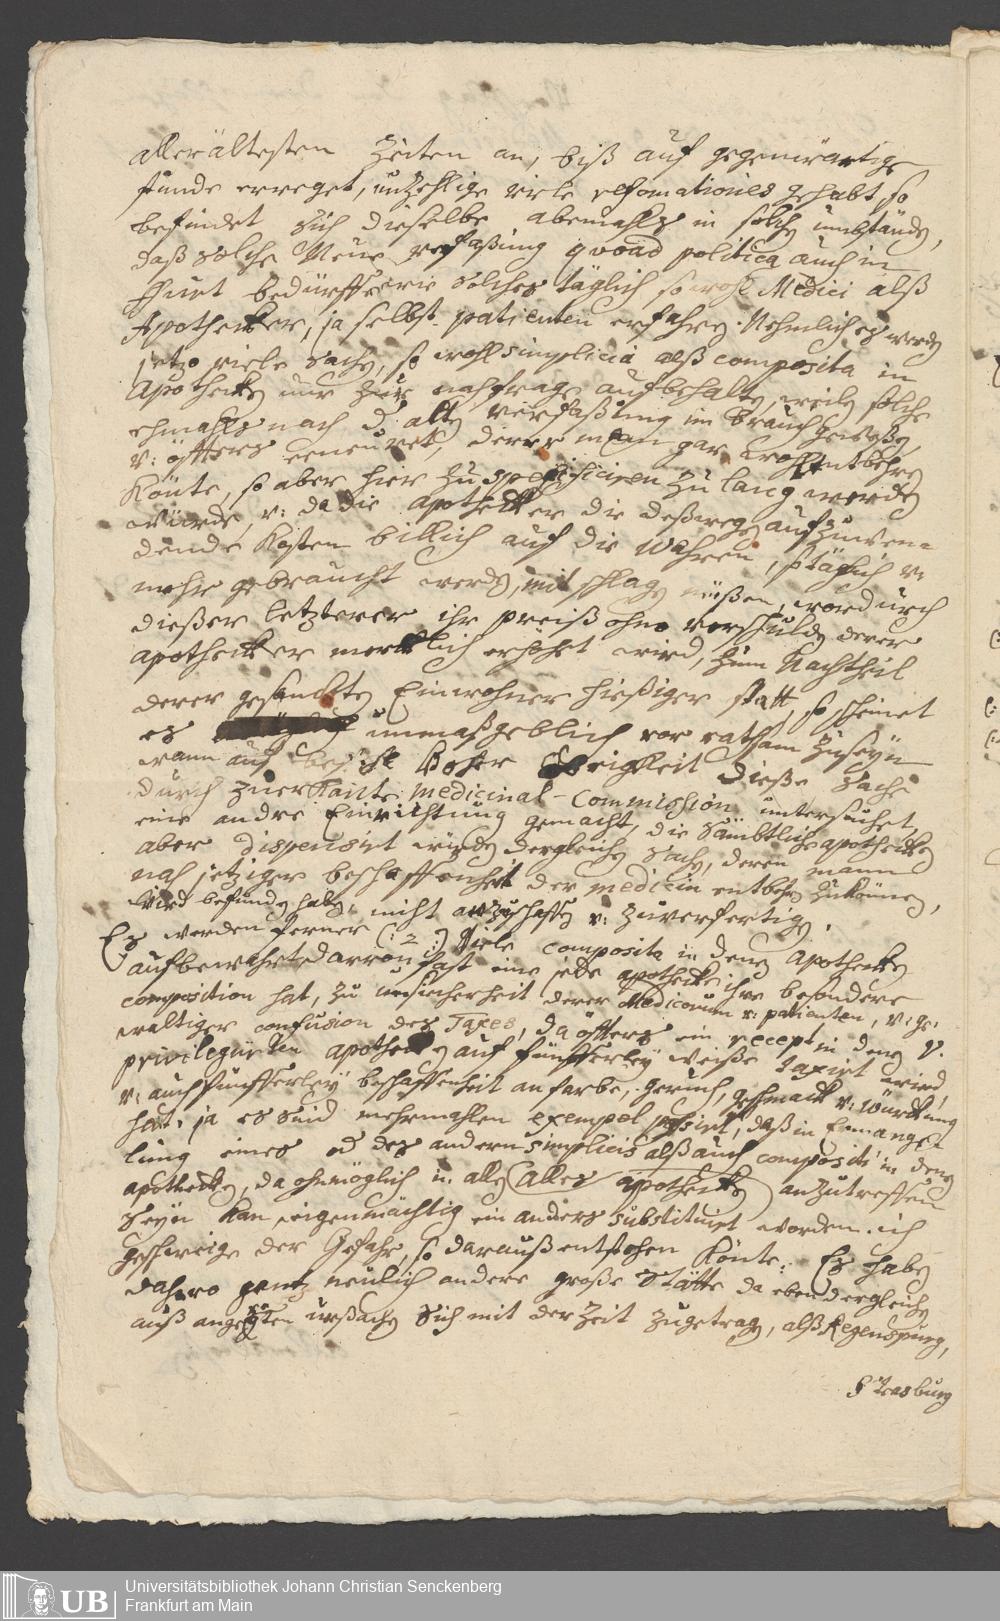 allerältesten Zeiten an, biß auf gegenwärtige
stunde erweget, unzehlige viele refomationes gehabt, so
befindet sich dieselbe abermahls in solchen umständen,
daß solche Neue verfaßung qvoad politica auch in
bedürffte, wie solches täglich sowohl Medici alß
Apothecker, ja selbst patienten erfahren. Nehmlich es werden
jetzo viele sachen, so wohl simplicia alß composita in
Apothecken nur zur nachfrage aufbehalten, weilen solche
ehmahls nach d. alten verfaßung im brauch gewesen,
v: öffters erneuret, derer man gar wohl entbehren
Könte, so aber hier zu specificiren zu lang werden
würde, v: da die apothecker die deßwegen aufzuwen-
dende Kosten billich auf die Wahren, so täglich v:
mehr gebraucht werden, mit schlagen müßen, wordurch
dießer letzterer ihr preiß ohne verschulden derer
apothecker mercklich erhöhet wird, zum Nachtheil
derer gesambten Einwohner hießiger statt, so scheinet
es unmaßgeblich vor rathsam zu seyn
wann auf Hoher Obrigkeit dieße Sache
durch zuerkante medicinal-Commission untersuchet,
eine andre Einrichtung gemacht, die sämbtliche apothecken
aber dispensirt würden dergleichen sachen, deren mann
nach jetziger beschaffenheit der medicin entbehren zu können,
wird befunden haben, nicht anzuschaffen v: zuverfertigen.
Es werden ferner (: 2 :) Viele composita in denen Apothecken
aufbewahrt darvon fast eine jede apothecke ihre besondere
composition hat, zu unsicherheit derer Medicorum v: patienten, v: ge-
waltiger confusion des Taxes, da öffters ein recept in denen V.
privilegirten apothecken auf fünfferley weiße taxirt wird,
v: auch fünfferley beschaffenheit an farbe, geruch, geschmack v: würckung
hat, ja es sind mehrmahlen exempel passirt, daß in Ermange-
lung eines od des andern simplicis alß auch compositi in denen
apothecken, da ohnmöglich in allen alles apothecken anzutreffen
seyn kan, eigenmächtig ein anders substituirt worden. ich
geschweige der Gefahr, so darauß entstehen Könte. Es haben
dahero gantz neulich andere große Stätte da eben dergleichen
auß angeregten urßachen sich mit der Zeit zugetragen, alß Regenspurg,
Strasburg
Universitätsbibliothek Johann Christian Senckenberg
Frankfurt am Main
UB